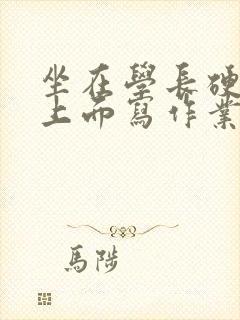 坐在學長硬
上而寫作業
馬陟